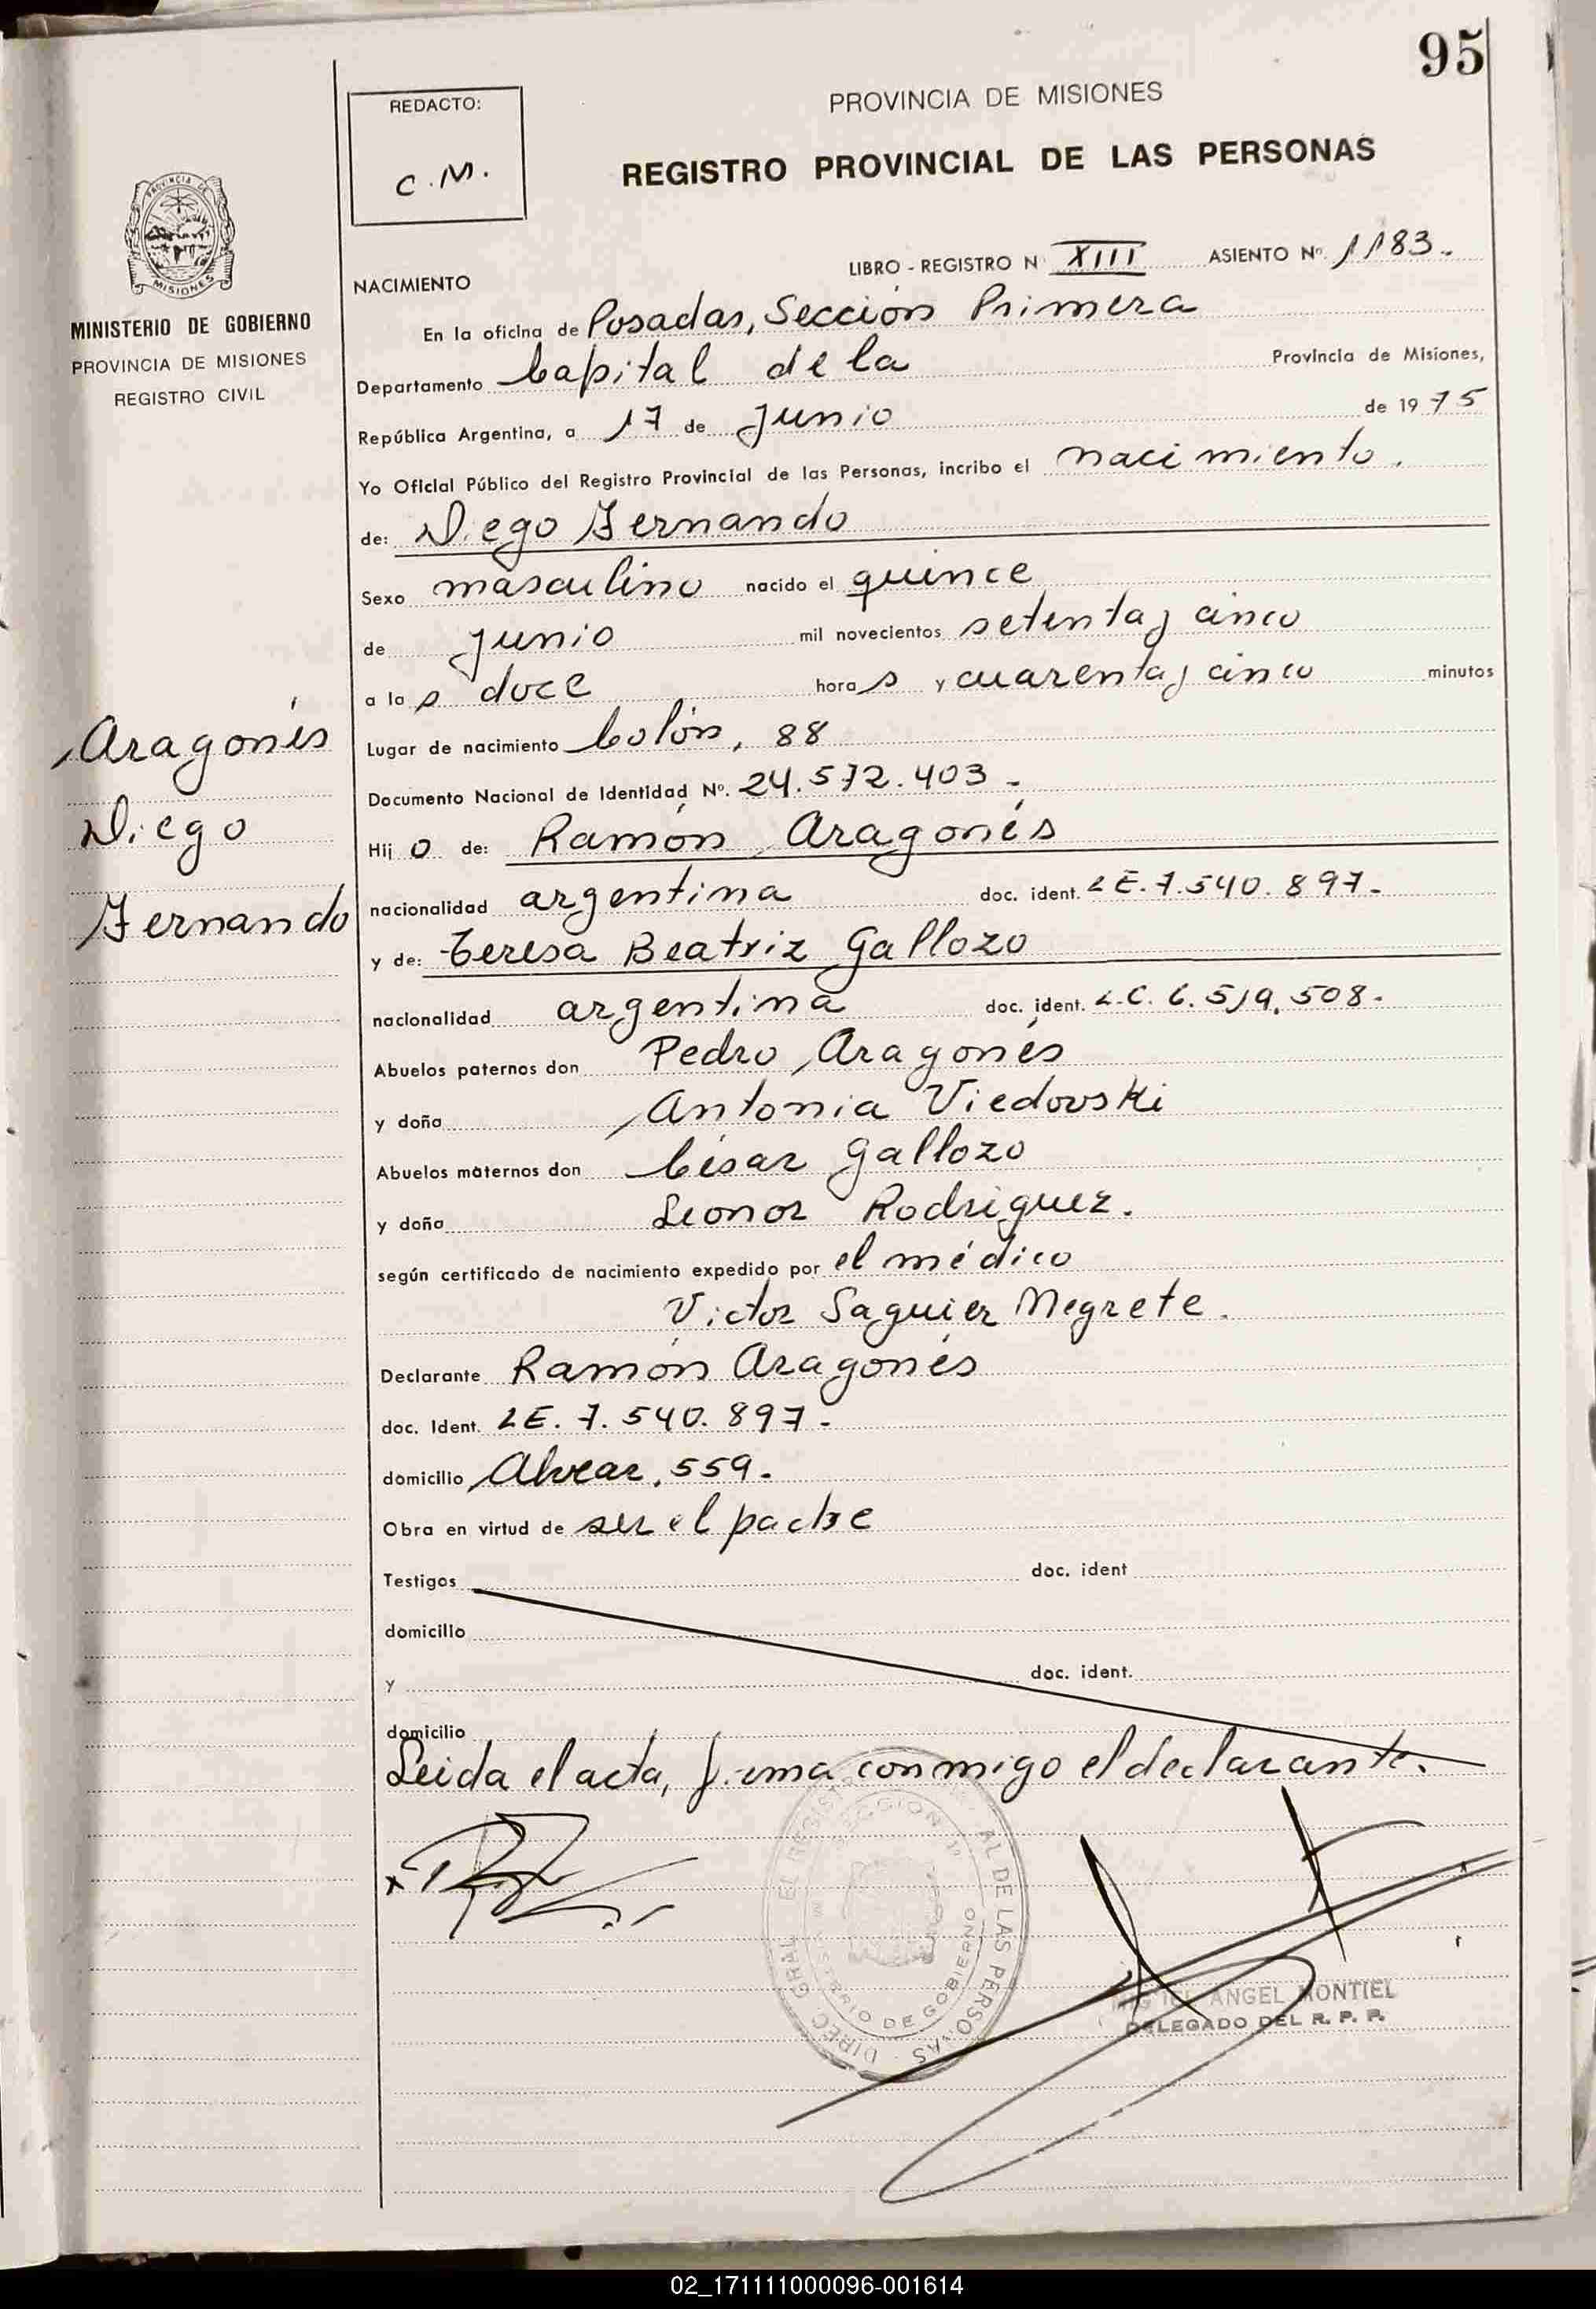 95
REDACTO:
C.M.
PROVINCIA DE MISIONES
REGISTRO PROVINCIAL DE LAS PERSONAS
PROVINCIA DE
MISIONES
MINISTERIO DE GOBIERNO
PROVINCIA DE MISIONES
REGISTRO CIVIL
LIBRO - REGISTRO N XIII ASIENTO Nº. 1183.-
NACIMIENTO
En la oficina de Posadas, Sección Primera
Departamento Capital de la Provincia de Misiones,
República Argentina, a 17 de Junio de 1975
Yo Oficial Público del Registro Provincial de las Personas, incribo el nacimiento.
de: Diego Fernando
Sexo masculino nacido el quince
de junio mil novecientos setenta y cinco
a las doce horas y cuarenta y cinco minutos
Aragonés
Lugar de nacimiento Colón, 88
Documento Nacional de Identidad Nº. 24.572.403.-
Diego
Hijo de: Ramón Aragonés
Fernando
nacionalidad argentina doc. ident. LE. 7.540.897.-
y de: Teresa Beatriz Gallozo
nacionalidad argentina doc. ident. L.C. 6.519.508.-
Abuelos paternos don Pedro Aragonés
y doña Antonia Viedovski
Abuelos maternos don César Gallozo
y doña Leonor Rodriguez.
según certificado de nacimiento expedido por el médico
Victor Saguier Negrete.
Declarante Ramón Aragonés
doc. Ident. LE. 7.540.897.-
domicilio Alvear, 559.-
Obra en virtud de ser el padre
Testigos doc. ident
domicilio
y doc. ident.
domicilio
Leida el acta, firma conmigo el declarante.
x
DIREC. GRAL. EL REGIST AL DE LAS PERSONAS
SECCION 1ª
MINISTERIO DE GOBIERNO
MIGUEL ANGEL MONTIEL
DELEGADO DEL R. P. P.
02_171111000096-001614